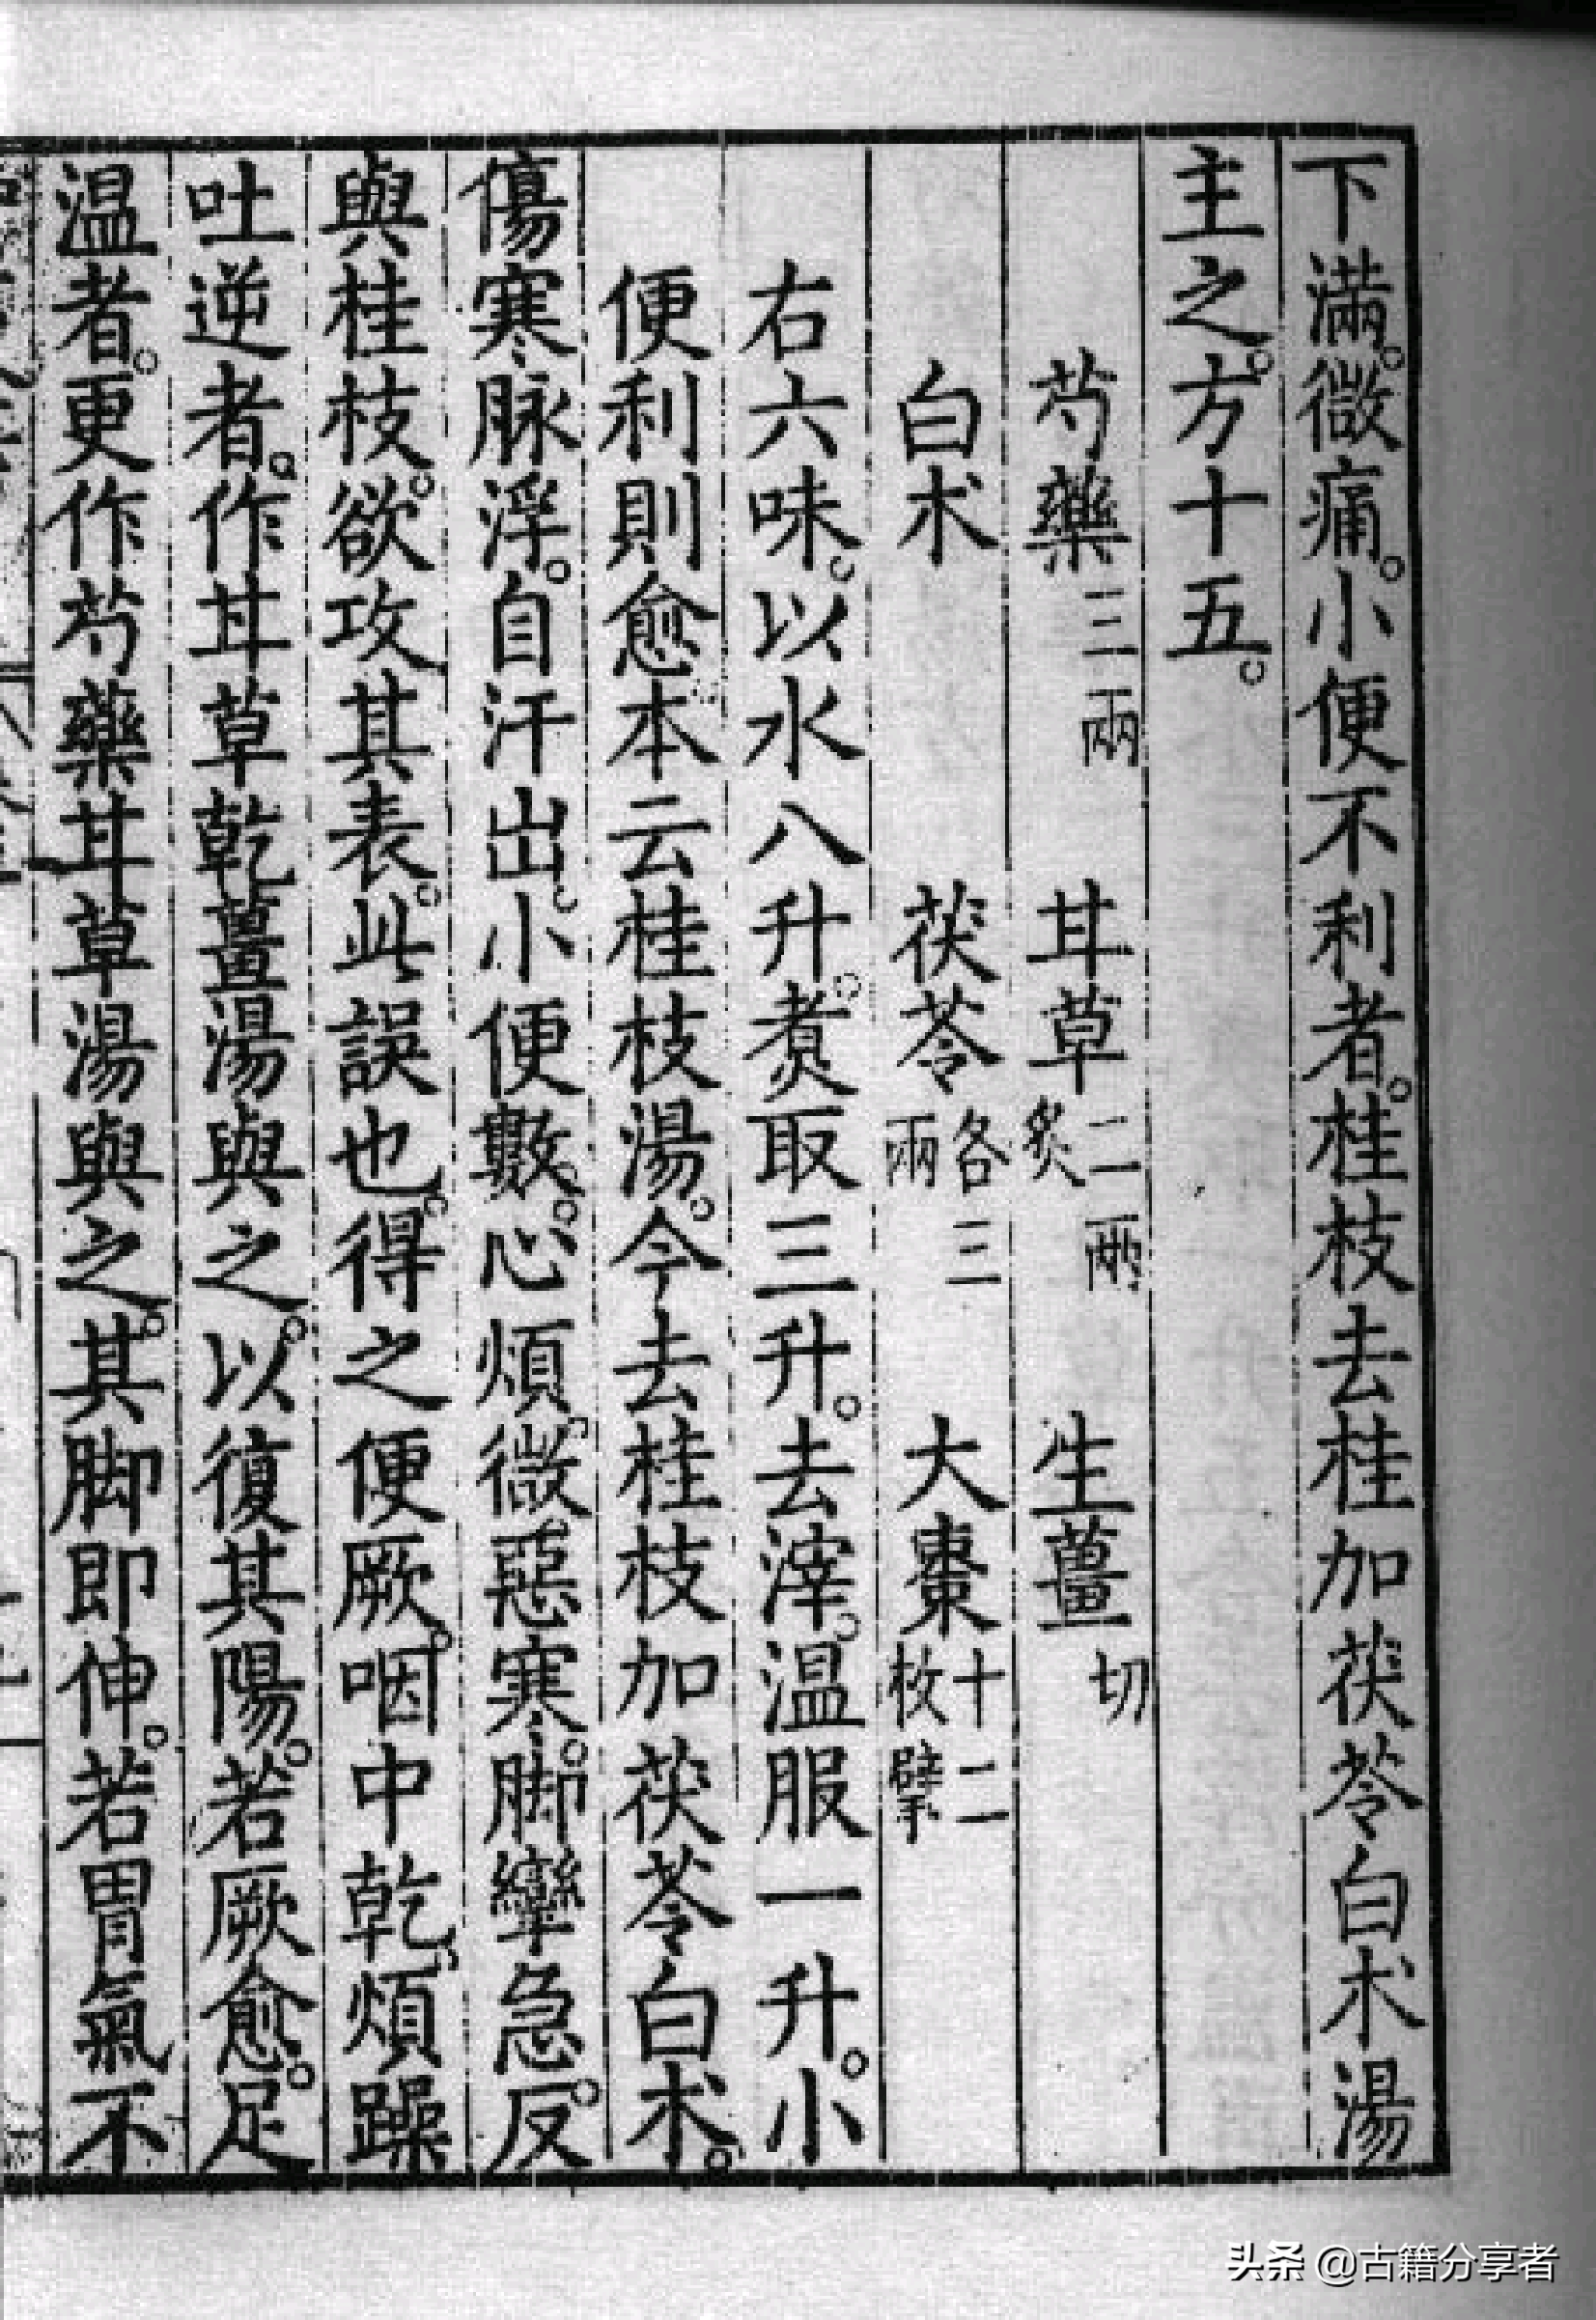 下滿。微痛。小便不利者。桂枝去桂加茯苓白术湯
主之。方十五。
芍藥三兩 甘草二兩炙 生薑切
白术 茯苓各三兩 大棗十二枚擘
右六味。以水八升。煑取三升。去滓。温服一升。小
便利則愈本云桂枝湯。今去桂枝加茯苓白术。
傷寒脉浮。自汗出。小便數。心煩。微惡寒。脚攣急。反
與桂枝。欲攻其表。此誤也。得之便厥。咽中乾。煩躁
吐逆者。作甘草乾薑湯與之。以復其陽。若厥愈。足
温者。更作芍藥甘草湯與之。其脚即伸。若胃氣不
头条 @古籍分享者